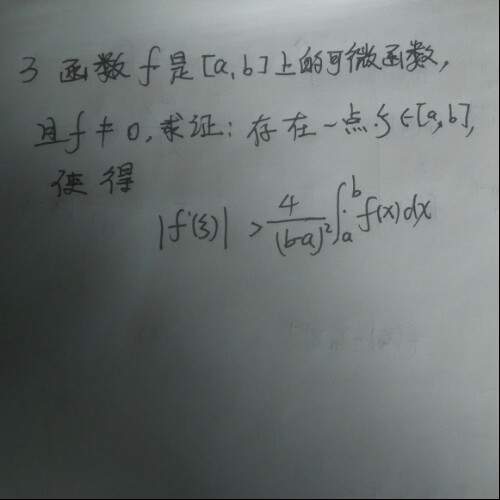 3 函数 f 是 [a,b] 上的可微函数,
且 f ≠ 0, 求证: 存在一点 ξ∈[a,b],
使得
|f'(ξ)| > \frac{4}{(b-a)^2} \int_a^b f(x)dx